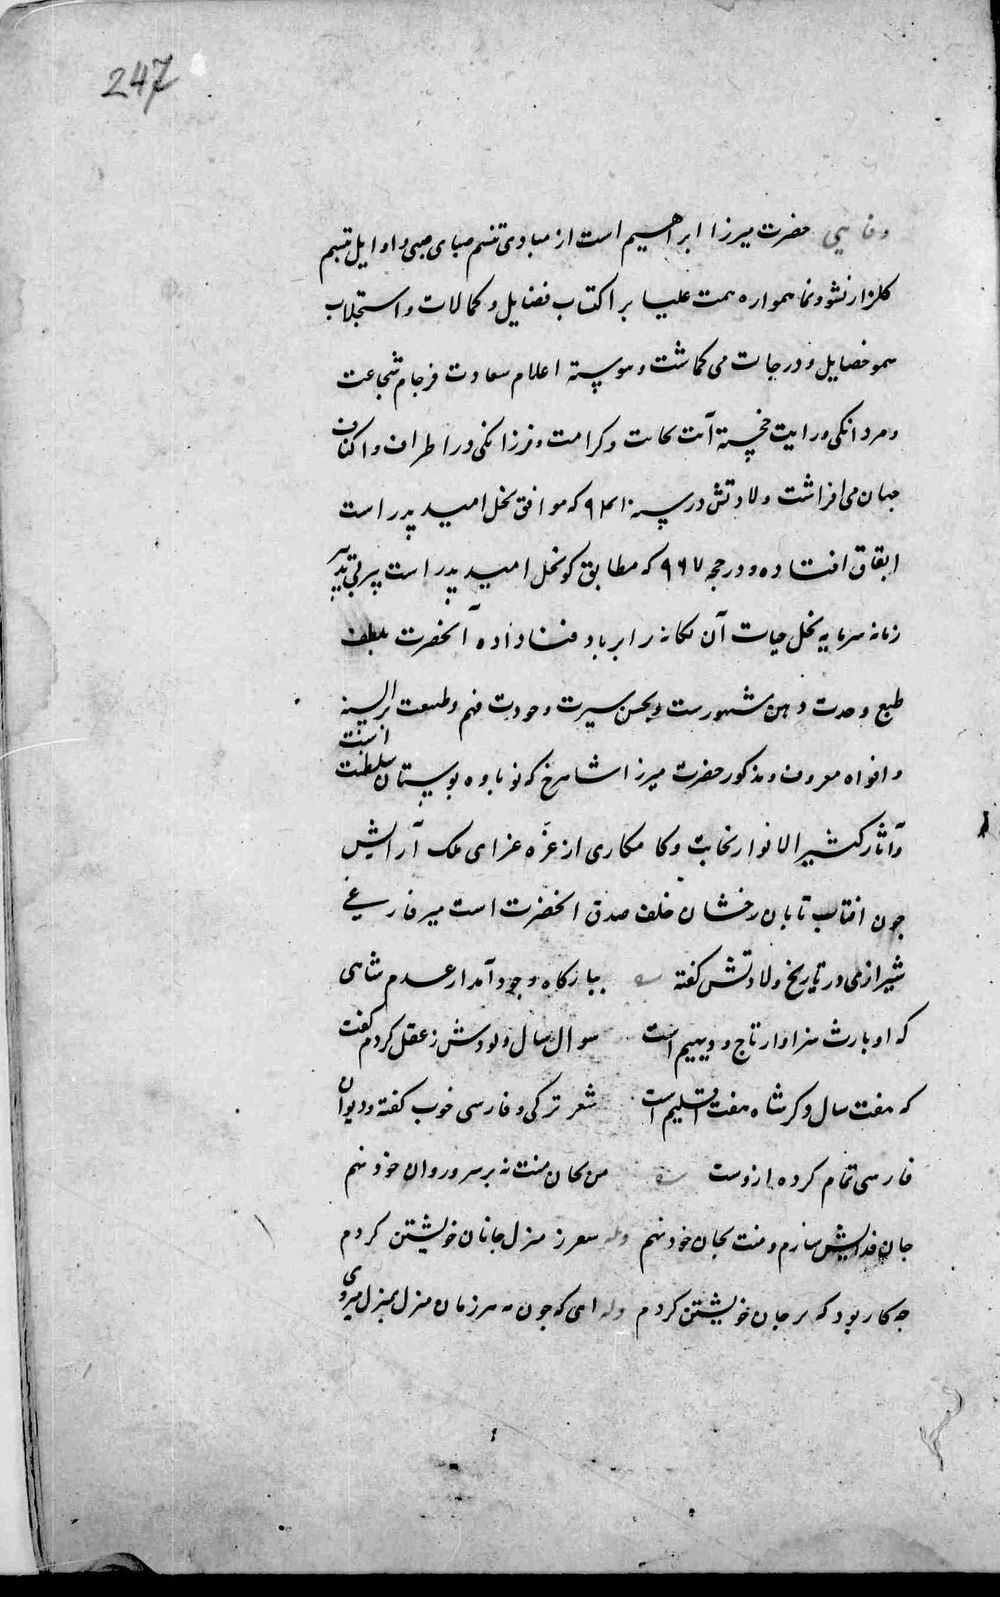 247
وفایی حضرت میرزا ابراهیم است از مبادی تنسم صبای صبی و اوایل تبسم
کلزار نشو و نما همواره همت علیا بر اکتساب فضایل و کمالات و استجلاب
سمو خصایل و درجات می کماشت و پیوسته اعلام سعادت فرجام شجاعت
و مردانکی و رایت خجسته آیت و کرامت و فرزانکی در اطراف و اکناف
جهان می افراشت ولادتش در سنه ۹۴۱ که موافق نخل امید پدر است
اتفاق افتاده و در ۹۶۷ که مطابق کو نخل امید پدر است پیر بی تدبیر
زمانه سرمایه نخل حیات آن یکانه را برباد فنا داده آنحضرت بلطف
طبع و حدت ذهن مشهورست و بحسن سیرت و جودت فهم و طبیعت بر السنه
و افواه معروف و مذکور حضرت میرزا شاهرخ که نوباوه بوستان سلطنت است
و آثار کثیر الانوار نجابت و کامکاری از غره غرای ملک آرایش
چون افتاب تابان رخشان خلف صدق آنحضرت است میر فارغی
شیرازی در تاریخ ولادتش کفته ببارکاه وجود آمد از عدم شاهی
که او بارث سزاوار تاج و دیهیم است سوال سال ولودش ز عقل کردم کفت
که هفت سال و کر شاه هفت اقلیم است شعر ترکی و فارسی خوب کفته و دیوان
فارسی تمام کرده ازوست من بجان منت نه بر سرو روان خود نهم
جان فدایش سازم و منت بجان خود نهم وله سفر ز منزل جانان خویشتن کردم
چه کار بود که بر جان خویشتن کردم وله ای که چون مه هر زمان منزل بمنزل میروی